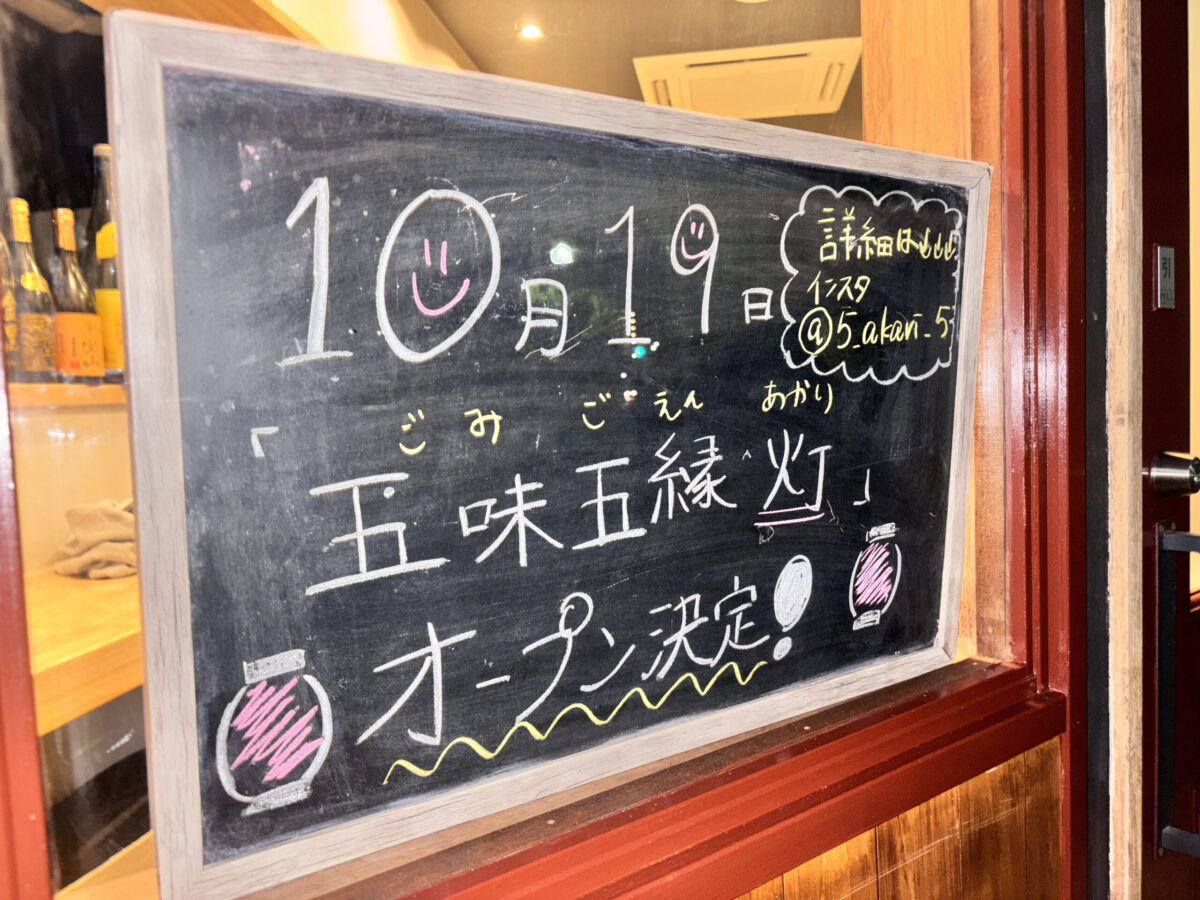 10月19日
詳細は↓↓↓
インスタ
@5_akari_5
ごみ ごえん あかり
「五味五縁 灯」
オープン決定!
引